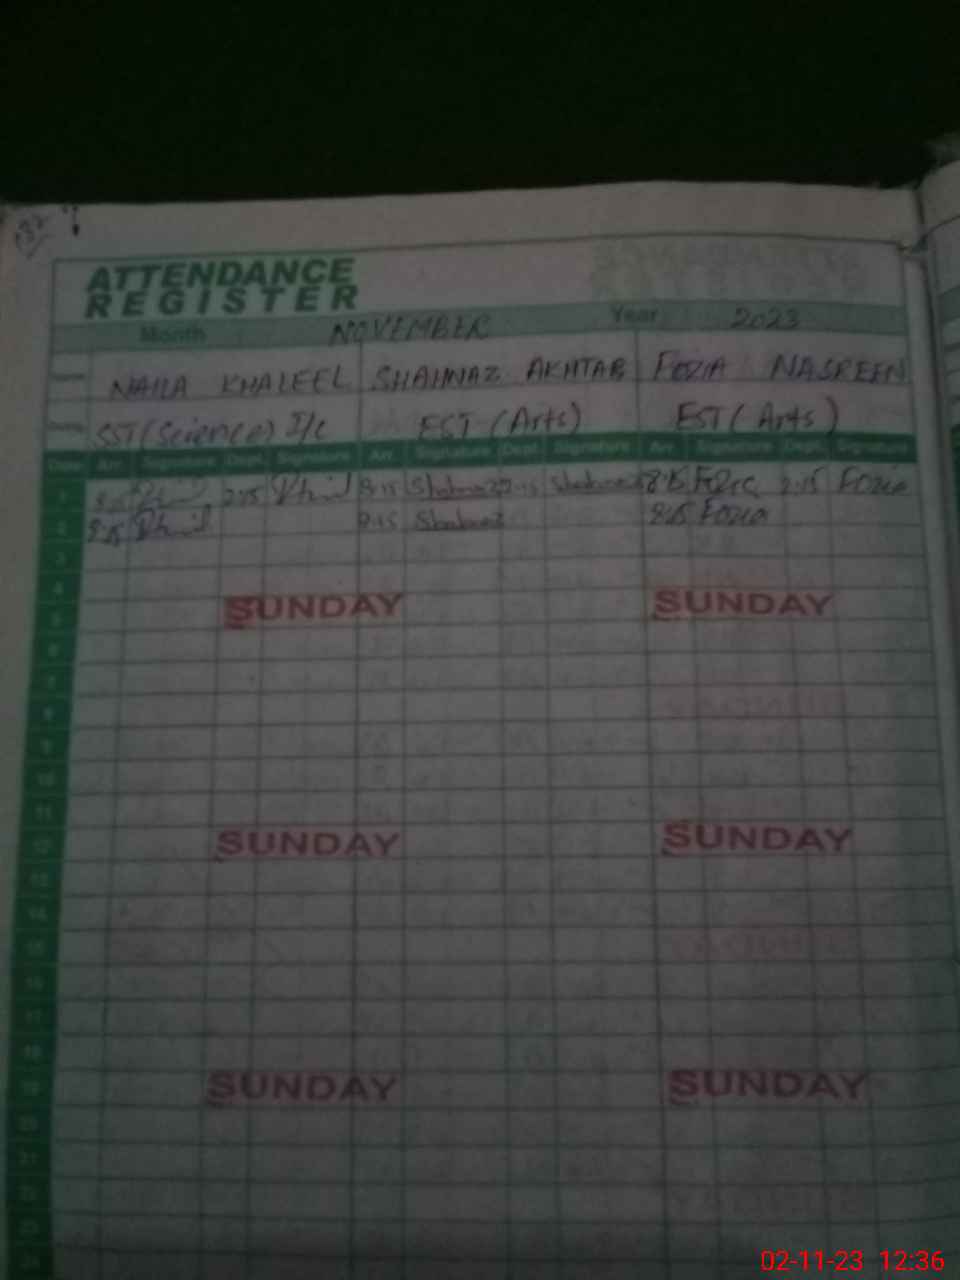 ATTENDANCE
REGISTER
Month NOVEMBER Year 2023
NAILA KHALEEL SHAHNAZ AKHTAR FOZIA NASREEN
SST (Science) I/C EST (Arts) EST (Arts)
Date Arr. Signature Dept. Signature Arr. Signature Dept. Signature Arr. Signature Dept. Signature
1 2:15 8:15 Shahnaz 2:15 Shahnaz 8:15 Fozia 2:15 Fozia
2 8:15 8:15 Shahnaz 8:15 Fozia
3
4
5 SUNDAY SUNDAY
6
7
8
9
10
11
12 SUNDAY SUNDAY
13
14
15
16
17
18
19 SUNDAY SUNDAY
20
21
22
23
24
02-11-23 12:36